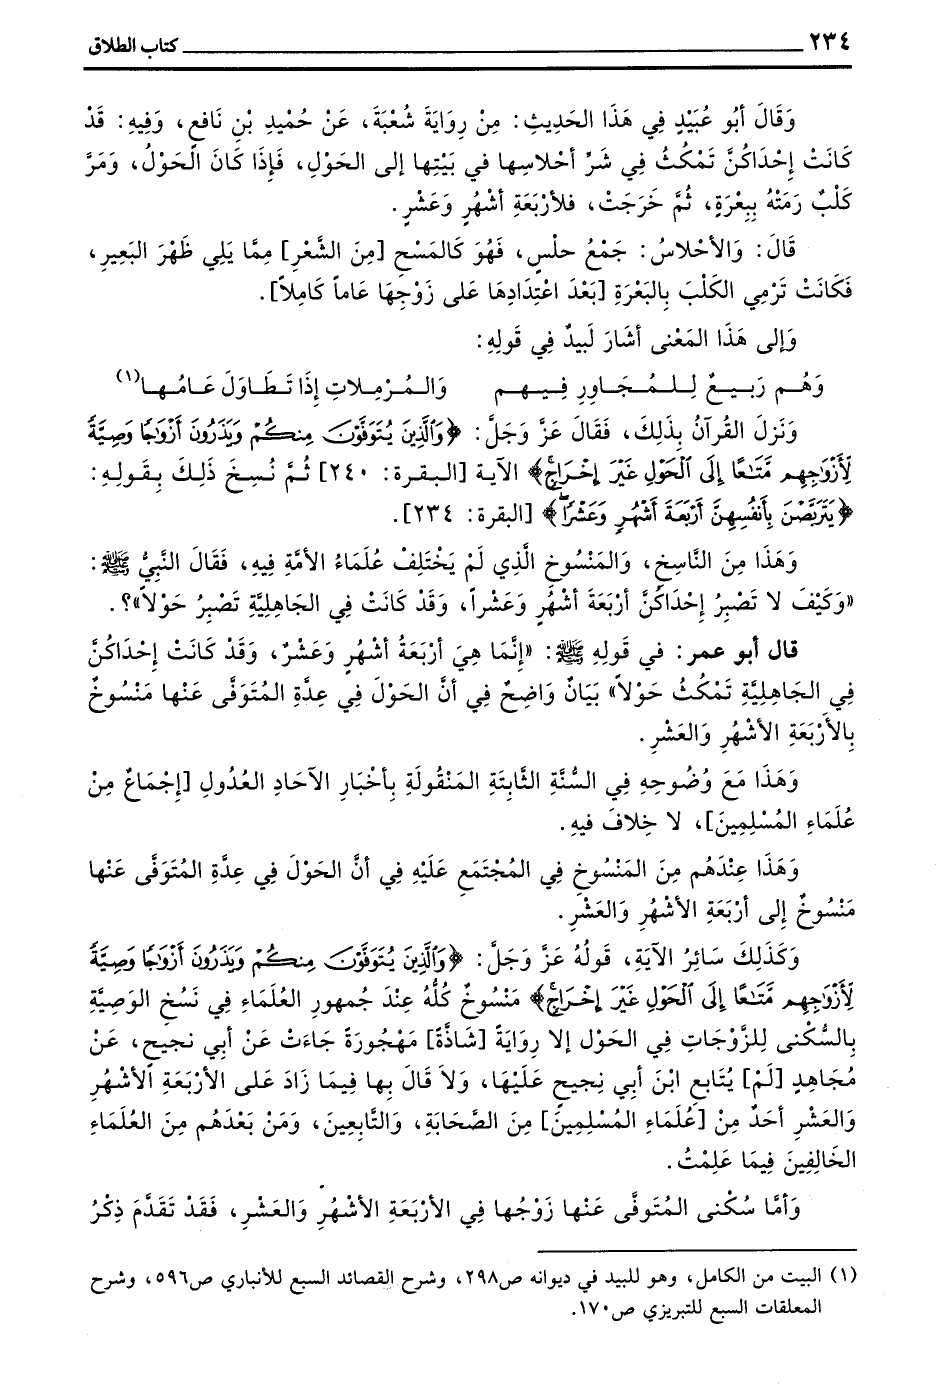 ٢٣٤ كتاب الطلاق
وَقَالَ أَبُو عُبَيْدٍ فِي هَذَا الحَدِيثِ: مِنْ رِوَايَةَ شُعْبَةَ، عَنْ حُمْيِدٍ بْنِ نَافعٍ، وَفِيهِ: قَدْ
كَانَتْ إِحْدَاكُنَّ تَمْكُثُ فِي شَرِّ أحْلاسِها في بَيْتِها إلى الحَوْلِ، فَإِذَا كَانَ الْحَوْلُ، وَمَرَّ
كَلْبٌ رَمَتْهُ بِبِعْرَةٍ، ثُمَّ خَرَجَتْ، فلأرْبَعَةِ أشْهُرٍ وَعَشْرٍ.
قَالَ: وَالأحْلاسُ: جَمْعُ حلْسٍ، فَهُوَ كَالمَسْحِ [مِنَ الشَّعْرِ] مِمَّا يَلِي ظَهْرَ البَعِيرِ،
فَكَانَتْ تَرْمِي الكَلْبَ بِالبَعْرَةِ [بَعْدَ اعْتِدَادِهَا عَلى زَوْجِهَا عَاماً كَامِلاً].
وَإلى هَذَا المَعْنى أشَارَ لَبيدٌ فِي قَولِهِ:
وَهُم رَبِيعٌ لِلمُجَاورِ فِيهم وَالمُرْمِلاتِ إذَا تَطَاوَلَ عَامُها(١)
وَنَزلَ القُرآنُ بِذَلِكَ، فَقَالَ عَزَّ وَجَلَّ: ﴿وَالَّذِينَ يُتَوَفَّوْنَ مِنكُمْ وَيَذَرُونَ أَزْوَاجًا وَصِيَّةً
لِّأَزْوَاجِهِم مَّتَاعًا إِلَى الْحَوْلِ غَيْرَ إِخْرَاجٍ﴾ الآية [البقرة: ٢٤٠] ثُمَّ نُسِخَ ذَلِكَ بِقَولِهِ:
﴿يَتَرَبَّصْنَ بِأَنفُسِهِنَّ أَرْبَعَةَ أَشْهُرٍ وَعَشْرًا﴾ [البقرة: ٢٣٤].
وَهَذَا مِنَ النَّاسِخِ، وَالمَنْسُوخِ الَّذِي لَمْ يَخْتَلِفْ عُلَمَاءُ الأمَّةِ فِيهِ، فَقَالَ النَّبِيُّ ﷺ:
«وَكَيْفَ لا تَصْبِرُ إحْدَاكُنَّ أرْبَعَةَ أشْهُرٍ وَعَشْراً، وَقَدْ كَانَتْ فِي الجَاهِليَّةِ تَصْبِرُ حَوْلاً»؟.
قال أبو عمر: في قَولِهِ ﷺ: «إنَّمَا هِيَ أرْبَعَةُ أشْهُرٍ وَعَشْرٌ، وَقَدْ كَانَتْ إحْدَاكُنَّ
فِي الجَاهِليَّةِ تَمْكُثُ حَوْلاً» بَيَانٌ وَاضِحٌ فِي أنَّ الحَوْلَ فِي عِدَّةِ المُتَوَفَّى عَنْها مَنْسُوخٌ
بِالأَرْبَعَةِ الأشْهُرِ وَالعَشْرِ.
وَهَذَا مَعَ وُضُوحِهِ فِي السُّنَّةِ الثَّابِتَةِ المَنْقُولَةِ بِأخْبَارِ الآحَادِ العُدُولِ [إجْمَاعٌ مِنْ
عُلَمَاءِ المُسْلِمِينَ]، لا خِلافَ فِيهِ.
وَهَذَا عِنْدَهُم مِنَ المَنْسُوخِ فِي المُجْتَمَعِ عَلَيْهِ فِي أنَّ الحَوْلَ فِي عِدَّةِ المُتَوَفَّى عَنْها
مَنْسُوخٌ إلى أرْبَعَةِ الأشْهُرِ وَالعَشْرِ.
وَكَذَلِكَ سَائِرُ الآيَةِ، قَولُهُ عَزَّ وَجَلَّ: ﴿وَالَّذِينَ يُتَوَفَّوْنَ مِنكُمْ وَيَذَرُونَ أَزْوَاجًا وَصِيَّةً
لِّأَزْوَاجِهِم مَّتَاعًا إِلَى الْحَوْلِ غَيْرَ إِخْرَاجٍ﴾ مَنْسُوخٌ كُلُّهُ عِنْدَ جُمهورِ العُلَمَاءِ فِي نَسْخِ الوَصِيَّةِ
بِالسُّكْنى لِلزَّوْجَاتِ فِي الحَوْلِ إلا رِوَايَةً [شَاذَّةً] مَهْجُورَةً جَاءَتْ عَنْ أبي نجيحٍ، عَنْ
مُجَاهِدٍ [لَمْ] يُتَابِعِ ابْنَ أبي نِجيحٍ عَلَيْهَا، وَلاَ قَالَ بِها فِيمَا زَادَ عَلى الأرْبَعَةِ الأشْهُرِ
وَالعَشْرِ أحَدٌ مِنْ [عُلَمَاءِ المُسْلِمِينَ] مِنَ الصَّحَابَةِ، وَالتَّابِعِينَ، وَمَنْ بَعْدَهُم مِنَ العُلَمَاءِ
الخَالِفِينَ فِيمَا عَلِمْتُ.
وَأمَّا سُكْنى المُتَوفَّى عَنْها زَوْجُها فِي الأرْبَعَةِ الأشْهُرِ وَالعَشْرِ، فَقَدْ تَقَدَّمَ ذِكْرُ
(١) البيت من الكامل، وهو للبيد في ديوانه ص٢٩٨، وشرح القصائد السبع للأنباري ص٥٩٦، وشرح
المعلقات السبع للتبريزي ص١٧٠.